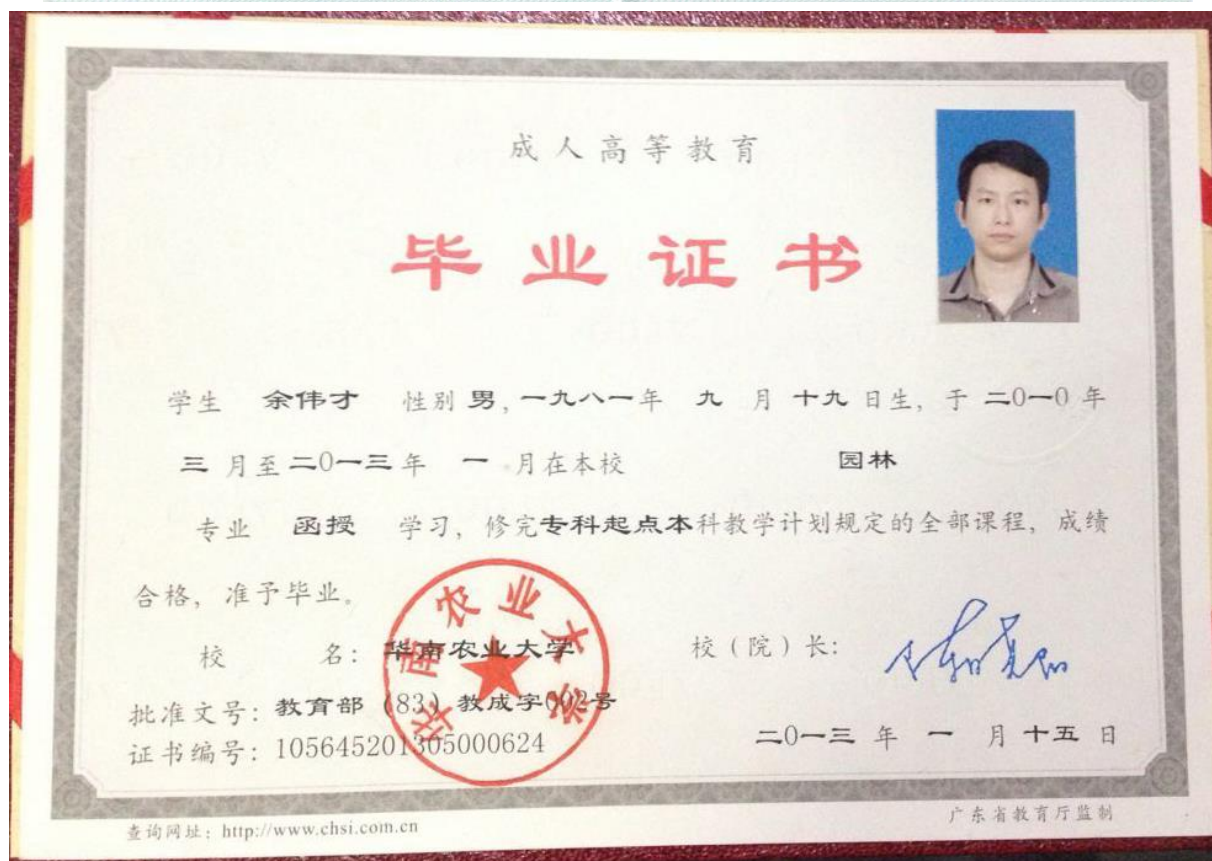 成人高等教育
毕业证书
学生 余伟才 性别 男，一九八一年 九 月 十九 日生，于 二0一0 年
三 月至 二0一三 年 一 月在本校 园林
专业 函授 学习，修完专科起点本科教学计划规定的全部课程，成绩
合格，准予毕业。
校 名：华南农业大学 校（院）长：
华南农业大学
批准文号：教育部（83）教成字002号
证书编号：105645201305000624 二0一三 年 一 月 十五 日
查询网址：http://www.chsi.com.cn 广东省教育厅监制